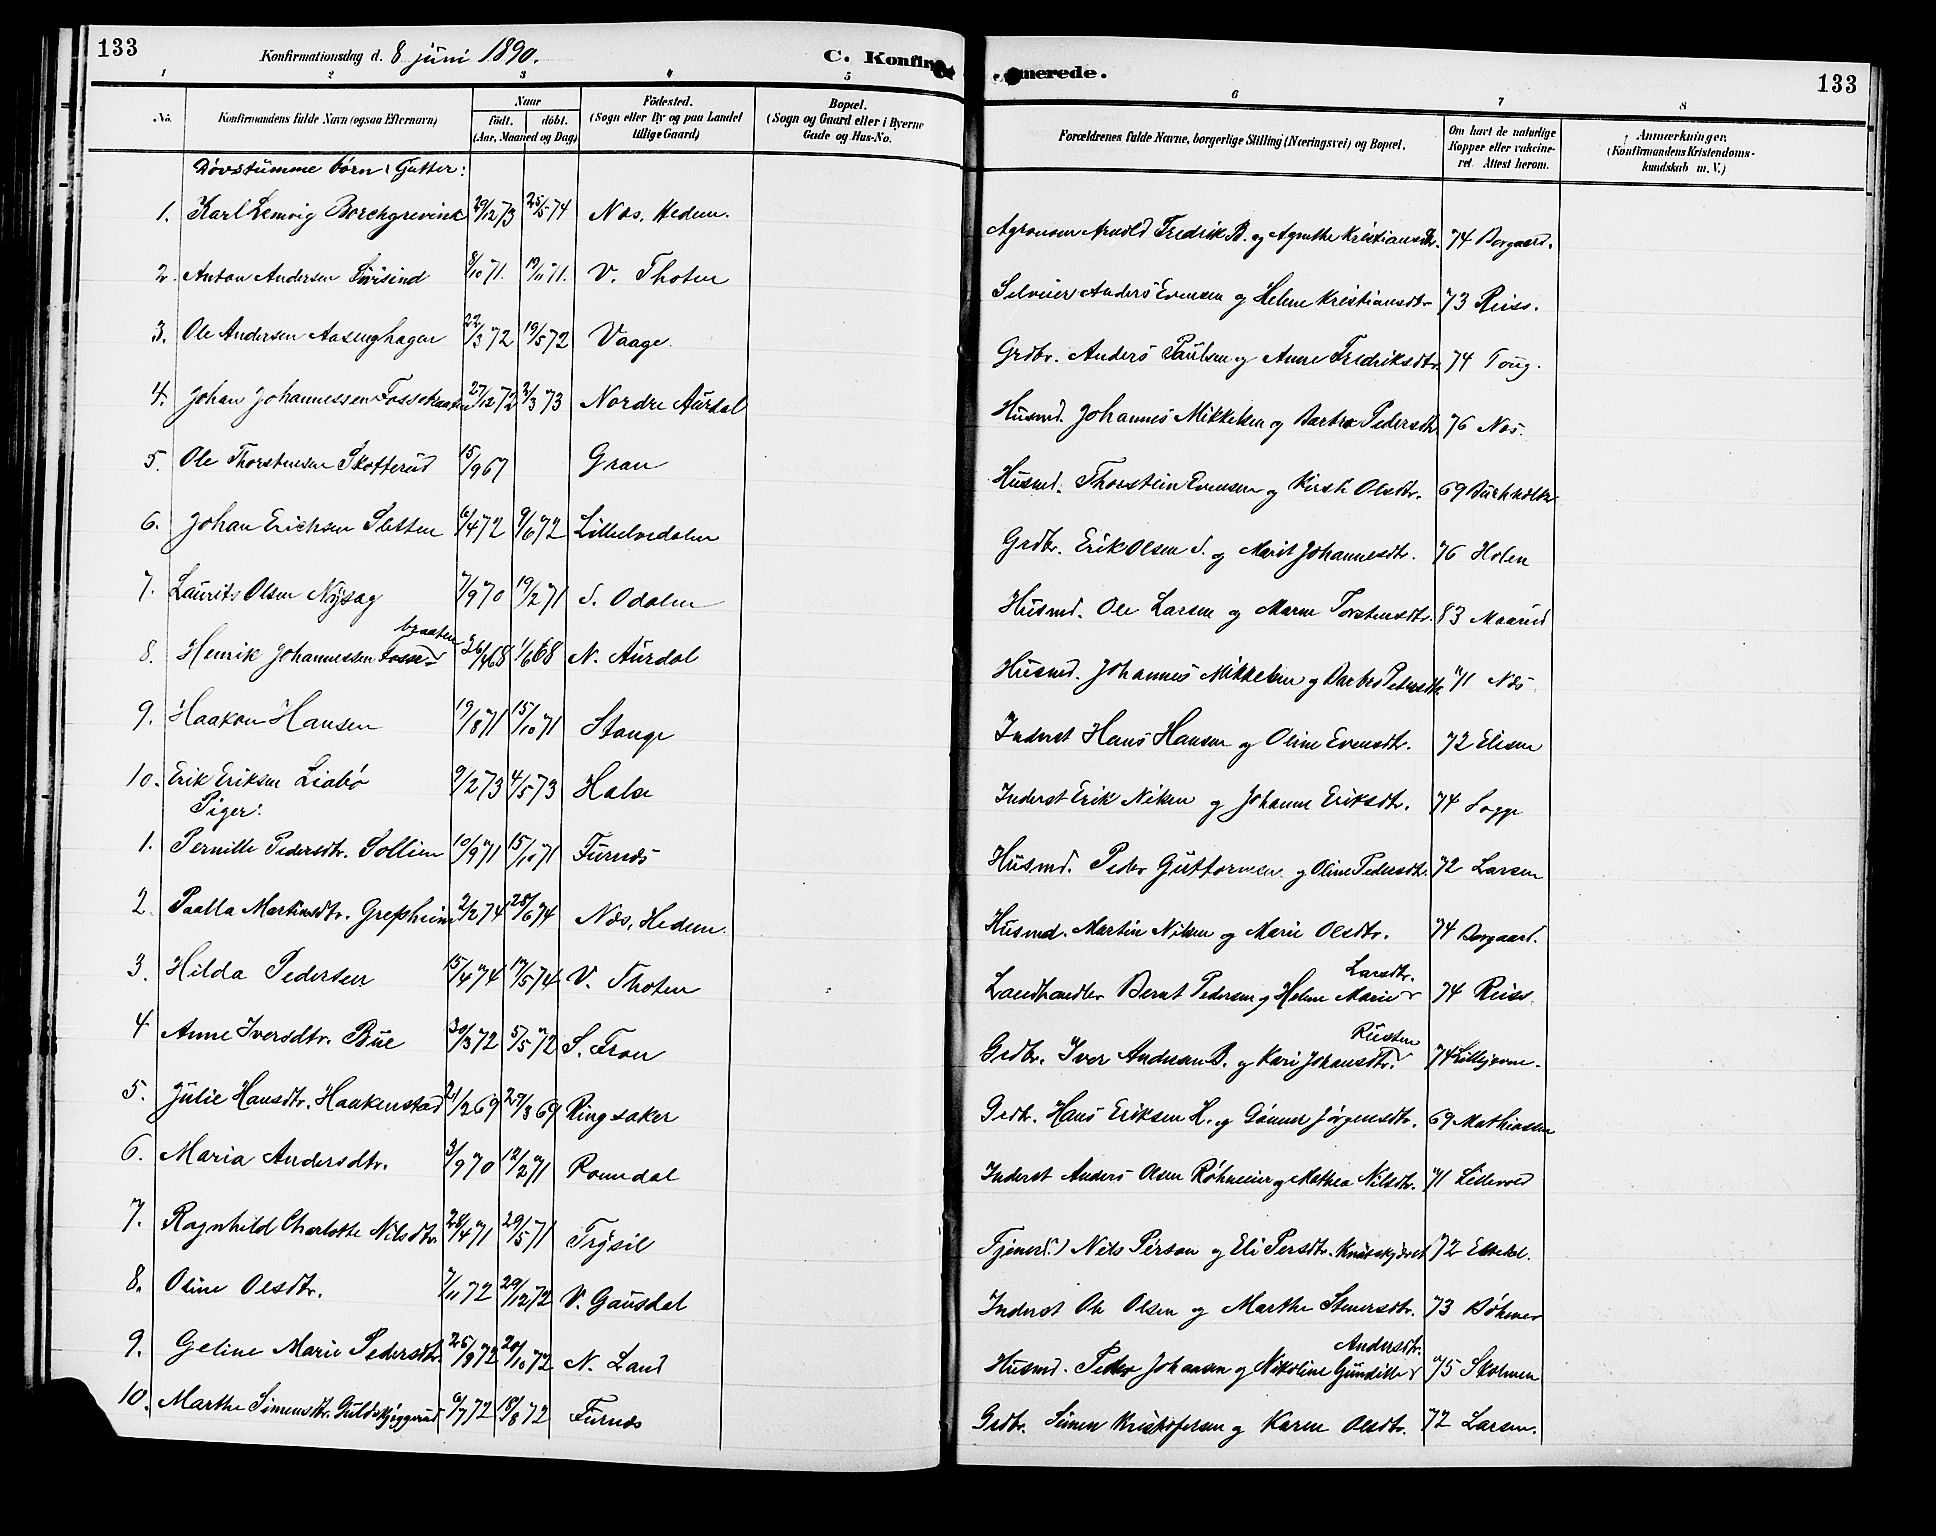 133
Konfirmationsdag d. 8 juni 1890.
C. Konfir
merede.
133
1 2 3 4 5 6 7 8
No.
Konfirmandens fulde Navn (ogsaa Efternavn)
Naar
födt. döbt.
(Aar, Maaned og Dag)
Födested.
(Sogn eller By og paa Landet
tillige Gaard)
Bopæl.
(Sogn og Gaard eller i Byerne
Gade og Hus-No.
Forældrenes fulde Navne, borgerlige Stilling (Næringsvei) og Bopæl.
Om havt de naturlige
Kopper eller vakcine-
ret. Attest herom.
Anmærkninger.
(Konfirmandens Kristendoms-
kundskab m. V.)
Døvstumme børn: Gutter:
1. Karl Lemvig Borchgrevink 29/12 73 25/5 74 Næs, Hedem. Agronom Arnold Fredrik B. og Agnethe Kristiansdtr. 74 Borgaard.
2. Anton Andersen 8/10 71. 19/11 71. V. Thoten Selveier Anders Evensen og Helene Kristiansdtr 73 Reiss.
3. Ole Andersen Aasenghagen 22/3 72 19/5 72 Vaage. Grdbr. Anders Paulsen og Anne Fredriksdtr. 74 Toug.
4. Johan Johannessen Fossebraaten 27/12 72 2/3 73 Nordre Aurdal Husmd. Johannes Mikkelsen og Barbra Pedersdtr. 76 Næs.
5. Ole Thorstensen Skotterud 15/9 67 Gran Husmd. Thorstein Evensen og Kirsti Olsdtr. 69 Buchholdtz
6. Johan Erichsen Sletten 6/4 72 9/6 72 Lilleelvedalen Grdbr. Erik Olsen S. og Marit Johannesdtr. 76 Holen
7. Laurits Olsen Nysag 7/9 70 19/2 71 S. Odalen Husmd. Ole Larsen og Maren Torstensdtr. 83 Maarud
8. Henrik Johannessen Fossebraaten 26/4 68 1/6 68 N. Aurdal Husmd. Johannes Mikkelsen og Barbro Pedersdtr. 71 Næs.
9. Haakon Hansen 19/8 71 15/10 71 Stange Inderst Hans Hansen og Oline Evensdtr. 72 Eliesen
10. Erik Eriksen Liabø 9/2 73 4/5 73 Halse Inderst Erik Nilsen og Johanne Eriksdtr. 74 Sogge
Piger:
1. Pernille Pedersdtr. Sollien 10/9 71 15/10 71 Furnæs Husmd. Peder Guttormsen og Oline Pedersdtr. 72 Larsen
2. Paulla Martinsdtr. Grefsheim 2/2 74 28/6 74 Næs, Hedem. Husmd. Martin Nilsen og Marie Olsdtr. 74 Borgaard.
3. Hilda Pedersen 15/4 74 17/5 74 V. Thoten Landhandler Bernt Pedersen og Helene Marie Larsdtr. 74 Reiss.
4 Anne Iversdtr. Bue 30/3 72 5/5 72 S. Fron Grdbr. Iver Andersen B. og Kari Johansdtr. Rusten 74
5. Julie Hansdtr. Haakenstad 21/2 69 29/3 69 Ringsaker Grdb. Hans Eriksen H. og Gunner Jørgensdtr. 69 Mathiassen
6. Maria Andersdtr. 3/9 70 12/2 71 Romedal Inderst Anders Olsen og Mathea Nilsdtr. 71 Lillevold
7. Ragnhild Charlotte Nilsdtr. 28/4 71 29/5 71 Trysil Nils Person og Eli Persdtr. 72
8. Oline Olsdtr. 7/11 72 29/12 72 V. Gausdal Inderst Ole Olsen og Marthe Stenersdtr. 73 Bøhmer
9. Geline Marie Pedersdtr. 25/8 72 20/10 72 N. Land Husmd. Peder Johansen og Nikoline Gundille Andersdtr. 75 Skolmen
10. Marthe Simensdtr. 6/7 72 18/8 72 Furnæs Grdbr. Simen Kristofersen og Karen Olsdtr. 72 Larsen.